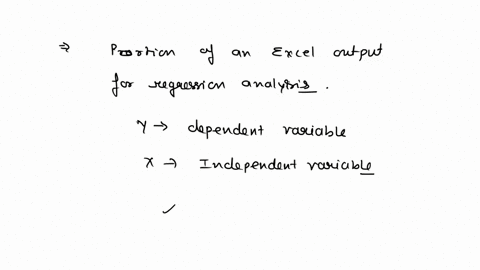 ⇒ Portion of an Excel output
for regression analysis.
Y → dependent variable
X → Independent variable
✓